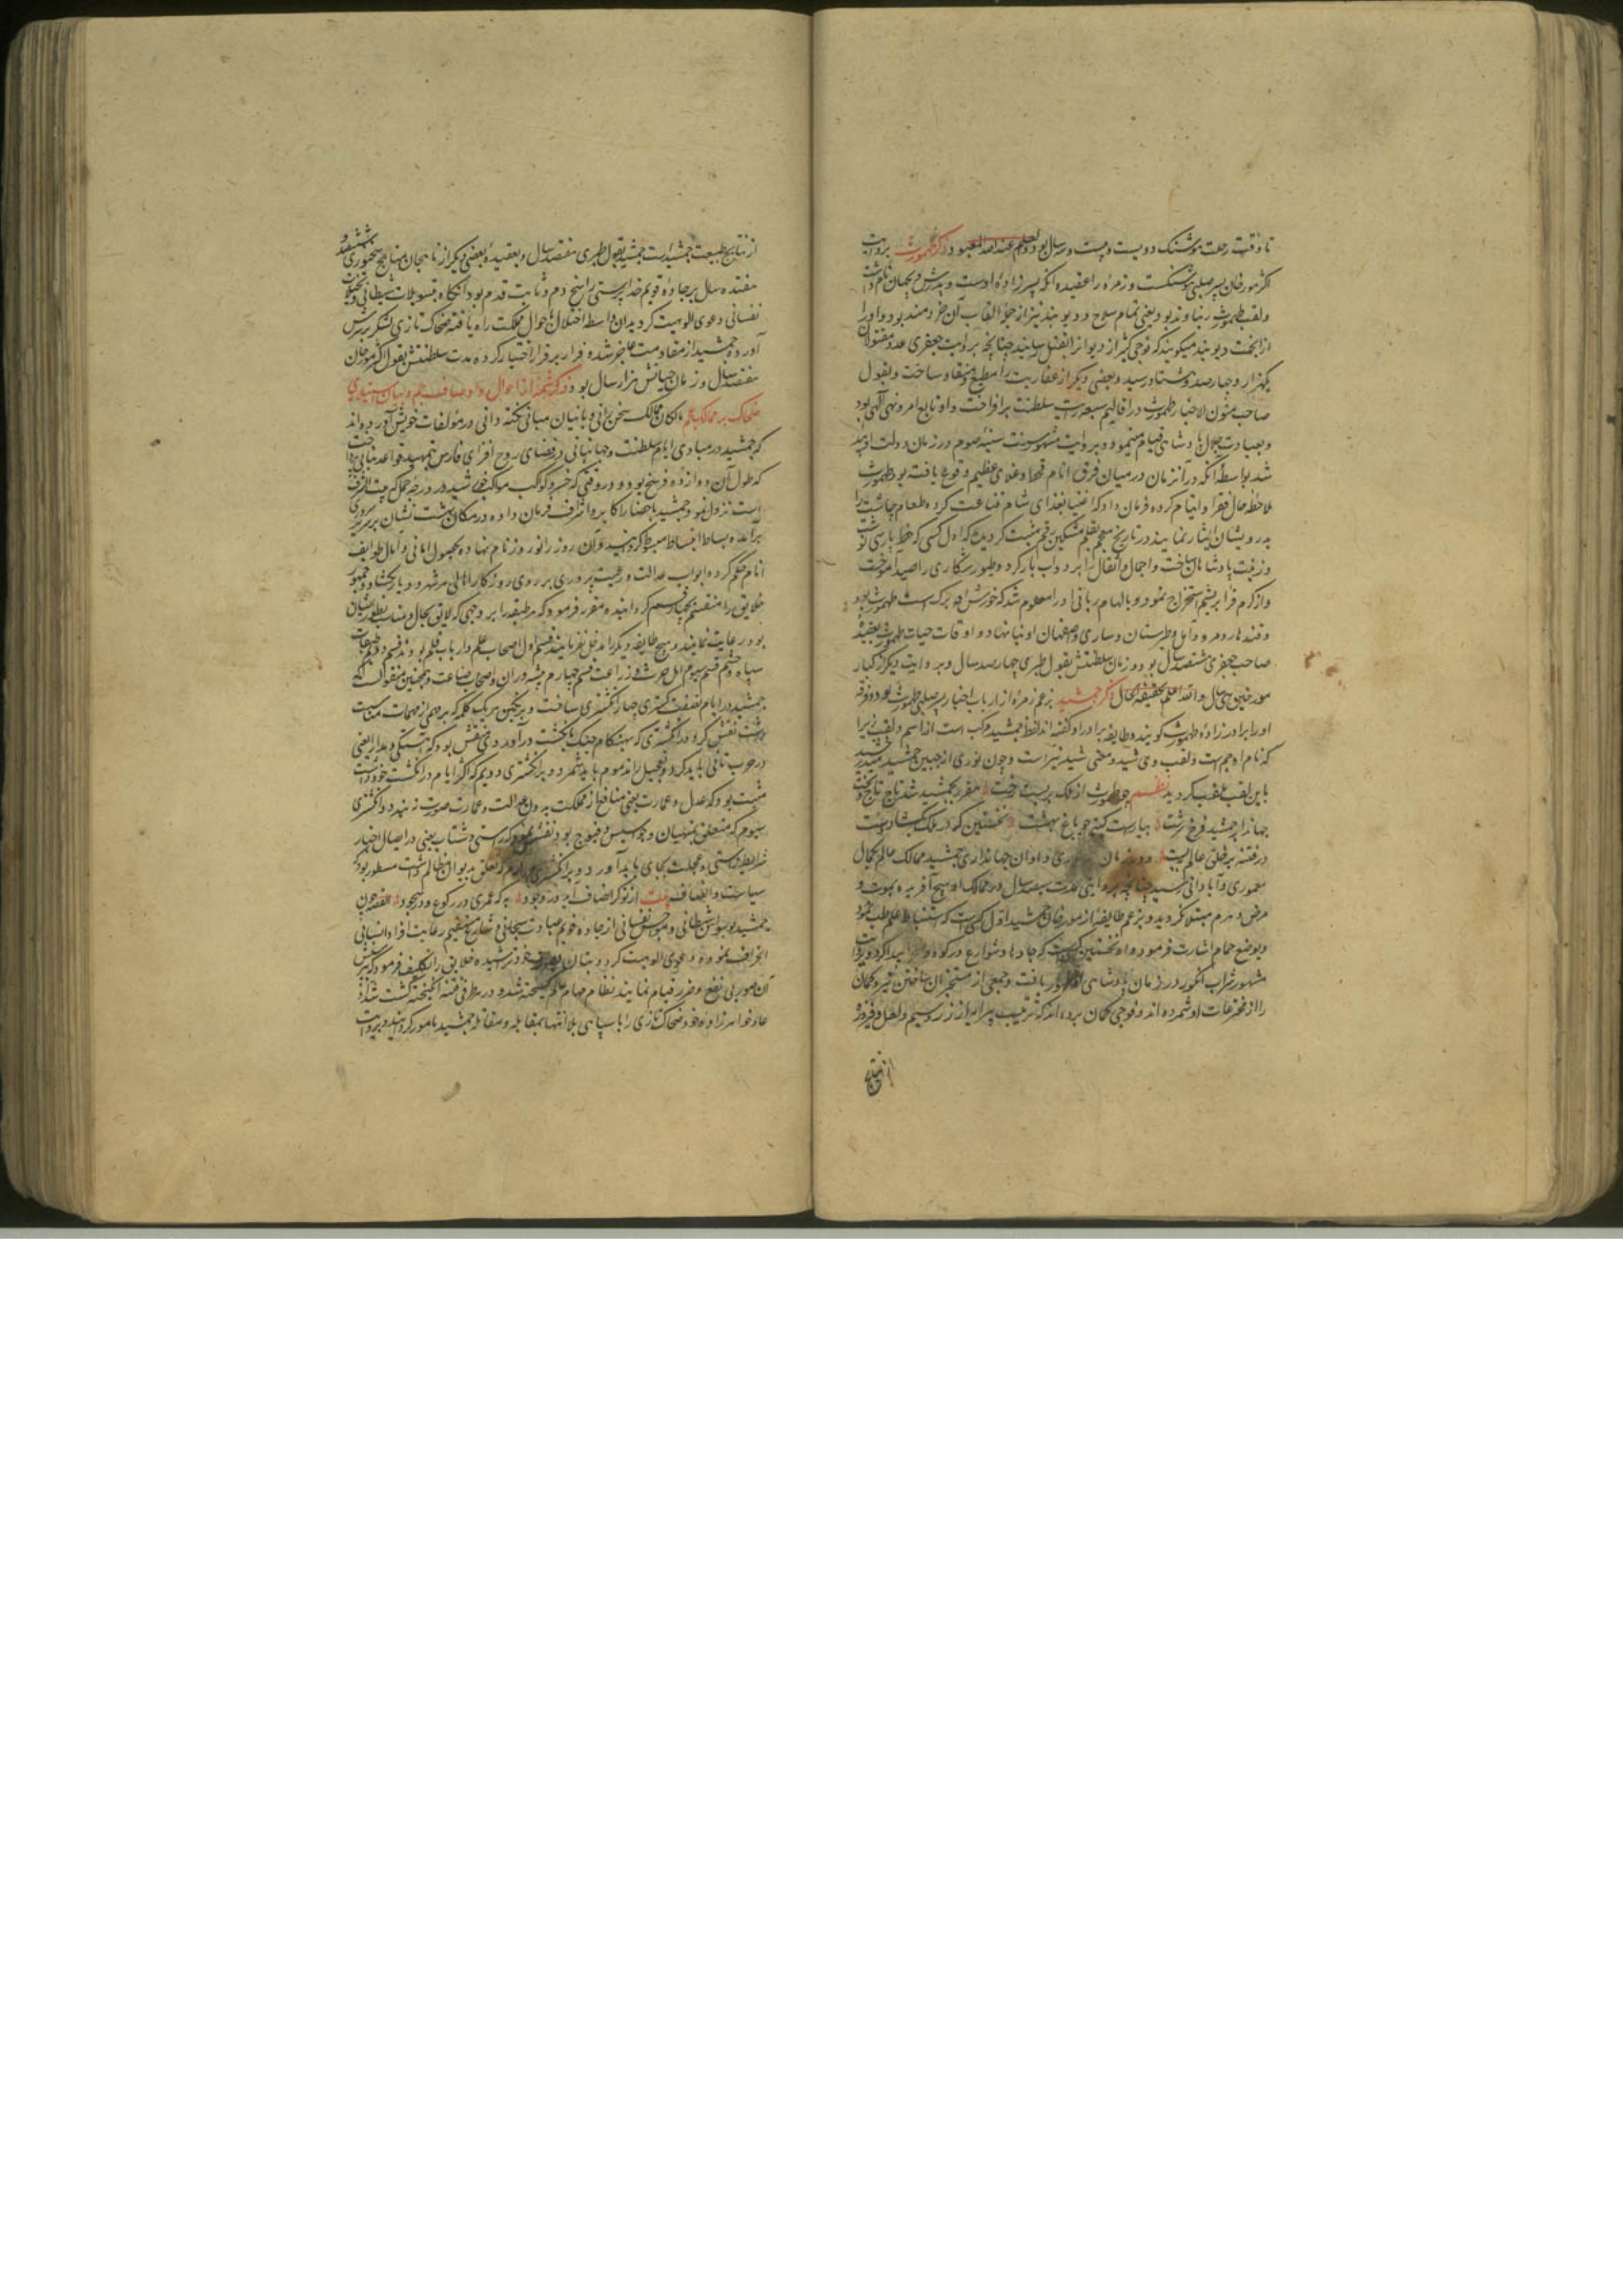 تا وقت رحلت هوشنک دویست و بیست و سه سال بود والعلم عند الله المعبود ذکر طهمورث بروایت
اکثر مورخان پسر صلبی هوشنکست و زمره را عقیده آنکه پسرزاده اوست و پدرش ویجهان نام داشت
و لقب طهمورث زیناوند بود یعنی تمام سلاح و دیوبند نیز از جمله القاب آن خردمند بود و او را
از آنجهت دیوبند میکویند که فوجی کثیر از دیوانرا بقتل رسانید چنانچه بروایت جعفری عدد مقتولان
بیکهزار و چهارصد و هشتاد رسید و بعضی دیکر از عفاریت را مطیع و منقاد ساخت و بقول
صاحب متون الاخبار طهمورث در اقالیم سبعه رایت سلطنت برافراخت و او تابع امر و نهی الهی بود
و بعبادت ملک متعال قیام مینمود و بروایت مشهور سنت صوم در زمان دولت او پدید
شد بواسطه آنکه در آن زمان در میان فرق انام قحط و غلای عظیم وقوع یافته بود طهمورث
ملاحظه حال فقرا و ایتام کرده فرمان داد که اغنیا بغذای شام قناعت کرده طعام چاشت را
بدرویشان ایثار نمایند در تاریخ معجم بقلم مشکین رقم مثبت کردیده که اول کسی که خط پارسی نوشت
و زینت پادشاهان ساخت و احمال و اثقال را بر دواب بار کرد و طیور شکاری را صید آموخت
و از کرم قز ابریشم استخراج نمود و بالهام ربانی او را معلوم شد که خورش او برک است طهمورث بود
و قندهار و مرو و آمل و طبرستان و ساری و اصفهان او بنا نهاد و اوقات حیات طهمورث بعقیده
صاحب جعفری هشتصد سال بود و زمان سلطنتش بقول طبری چهارصد سال و بروایت دیکر از کبار
مورخین سی سال والله اعلم بحقیقة الحال ذکر جمشید بزعم زمره از ارباب اخبار پسر صلبی طهمورث بود و فرقه
او را برادرزاده طهمورث کویند و طایفه برادر او کفته‌اند لفظ جمشید مرکب است از اسم و لقب زیرا
که نام او جم است و لقب وی شید و معنی شید نیر است و چون نوری از جبین جمشید میدرخشید
باین لقب ملقب کردید نظم چو طهمورث از ملک بربست رخت مقرر بجمشید شد تاج و تخت
جهاندار جمشید فرخ سرشت بیاراست کیتی چو باغ بهشت نخستین که در ملک بکشاد دست
در فتنه بر خلق عالم ببست و در زمان و اوان جهانداری جمشید ممالک عالم بکمال
معموری و آبادانی رسید چنانچه بروایتی مدت سیصد سال در ممالک او هیچ آفریده بموت و
مرض و هرم مبتلا نکردید و بزعم طایفه از مورخان جمشید اول کسیست که استنباط علم طب نمود
و بوضع حمام اشارت فرمود و او نخستین کسیست که جادها و شوارع در کوه و صحرا پیدا کرد و بروایت
مشهور شراب انکور در زمان پادشاهی او ظهور یافت و جمعی از متبحران ساختن تیر و کمان
را از مخترعات او شمرده‌اند و فوجی کمان برده‌اند که ترتیب پیرایه از زر و سیم و لعل و فیروزه
از نتایج
از نتایج طبیعت جمشید است جمشید بقول طبری هفتصد سال و بعقیده بعضی دیکر از ناهجان مناهج سخنوری ششصد و
هفتده سال بر جاده قویم خداپرستی راسخ دم و ثابت قدم بود آنکاه بتسویلات شیطانی و تخیلات
نفسانی دعوی الوهیت کرد بدان واسطه اختلال باحوال مملکت راه یافته ضحاک تازی لشکر بر سرش
آورده جمشید از مقاومت عاجز شده فرار برقرار اختیار کرد مدت سلطنتش بقول اکثر مورخان
هفتصد سال و زمان حیاتش هزار سال بود ذکر شمه از احوال و اوصاف جم و بیان استیلای
ضحاک بر ممالک عجم مالکان ممالک سخن‌رانی و بانیان مبانی نکته‌دانی در مؤلفات خویش آورده‌اند
که جمشید در مبادی ایام سلطنت و جهانبانی در فضای روح‌افزای فارس بتمهید قواعد بنایی پرداخت
که طول آن دوازده فرسخ بود و در وقتی که خسرو کواکب مواکب خورشید در درجه حمل که بیت الشرف
است نزول نمود جمشید باحضار اکابر و اشراف فرمان داده در مکان بهشت نشان بر سریر سروری
برآمده بساط انبساط مبسوط کردانید و آن روز را نوروز نام نهاده بحصول امانی و آمال طوایف
انام حکم کرده ابواب عدالت و رعیت‌پروری بر روی روزکار اهالی هر شهر و دیار بکشاد و جمهور
خلایق را منقسم بچهار قسم کردانیده مقرر فرمود که هر طبقه را بر وجهی که لایق بحال و مناسب بطور ایشان
بود رعایت نمایند و هیچ طایفه دیکر را دخل نفرمایند قسم اول اصحاب علم و ارباب قلم بودند قسم دویم طبقات
سپاه و حشم قسم سیوم اهل حرث و زراعت قسم چهارم پیشه‌وران و اصحاب صناعت و همچنین منقولست که
جمشید در ایام نصفت کستری چهار انکشتری ساخت و بر نکین هر یک کلمه که بر مهمی از مهمات مناسبت
داشت نقش کرد و انکشتری که بهنکام جنک بانکشت درآوردی نقش بود که آهستکی و مدارا یعنی
در حرب تأنی باید کرد و تعجیل را مذموم باید شمرد و بر انکشتری دویم که اکثر ایام در انکشت خود داشت
مثبت بود که عدل و عمارت یعنی منافع از مملکت بدون عدالت و عمارت صورت نه‌بندد و انکشتری
سیوم که متعلق بمنهیان و جواسیس و فیوج بود نقش نمود که راستی و شتاب یعنی در ایصال اخبار
شرایط راستی و عجلت بجای باید آورد و بر انکشتری چهارم که تعلق بدیوان مظالم داشت مسطور بود که
سیاست و انصاف بیت از تو کر انصاف آید در وجود به که عمری در رکوع و در سجود القصه چون
جمشید بوسواس شیطانی و هواجس نفسانی از جاده قویم عبادت سبحانی و شارع مستقیم رعایت افراد انسانی
انحراف نموده دعوی الوهیت کرد و بتان بصورت خود تراشیده خلایق را تکلیف فرمود که پرستش
آن امور بی نفع و ضرر قیام نمایند نظام مهام عالم کسیخته شد و در هر طرفی فتنه انکیخته کشت شداد
عاد خواهرزاده خود ضحاک تازی را با سپاهی بلاانتها بمقابله و مقاتله جمشید مامور کردانید و بروایت